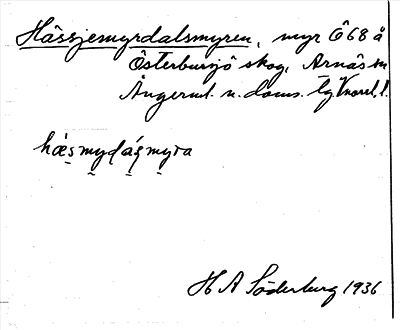 Hässjemyrdalsmyren, myr Ö 68 å
Österbursjö skog, Arnäs sn
Ångerml. n. doms. tg Vnorrl. l.
hæsmydásmyra
H A Söderburg 1936